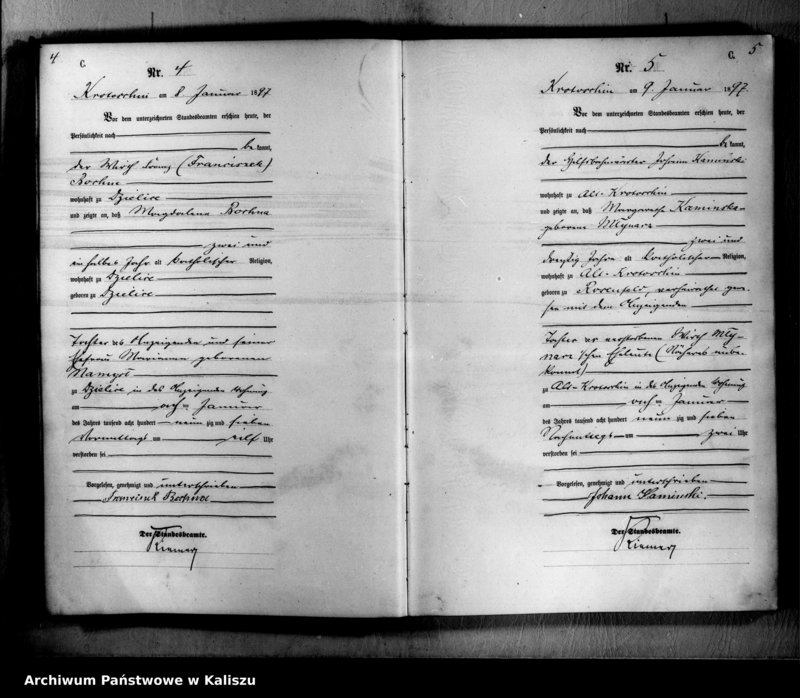 4
C.
Nr. 4
Krotoschin am 8. Januar 1897
Vor dem unterzeichneten Standesbeamten erschien heute, der
Persönlichkeit nach
be kannt,
der Wirth Franz (Franciszek)
Bochna
wohnhaft zu Dzielice
und zeigte an, daß Magdalena Bochna
zwei und
ein halbes Jahr alt katholischer Religion,
wohnhaft zu Dzielice
geboren zu Dzielice
Tochter des Anzeigenden und seiner
Ehefrau Marianna geborenen
zu Dzielice in des Anzeigenden Wohnung
am acht ten Januar
des Jahres tausend acht hundert neun zig und sieben
Vormittags um elf Uhr
verstorben sei
Vorgelesen, genehmigt und unterschrieben
Franciszek Bochna
Der Standesbeamte.
5
C.
Nr. 5
Krotoschin am 9. Januar 1897.
Vor dem unterzeichneten Standesbeamten erschien heute, der
Persönlichkeit nach
be kannt,
der Hilfsbahnwärter Johann Kaminski
wohnhaft zu Alt-Krotoschin
und zeigte an, daß Margarethe Kaminska
geborene Mlynarz
zwei und
dreißig Jahre alt katholischer Religion,
wohnhaft zu Alt-Krotoschin
geboren zu Rosenfeld, verheirathet gewe-
sen mit dem Anzeigenden
Tochter der verstorbenen Wirth Mly-
narz'schen Eheleute (Näheres unbe-
kannt)
zu Alt-Krotoschin in des Anzeigenden Wohnung
am acht ten Januar
des Jahres tausend acht hundert neun zig und sieben
Nachmittags um zwei Uhr
verstorben sei
Vorgelesen, genehmigt und unterschrieben
Johann Kaminski.
Der Standesbeamte.
Archiwum Państwowe w Kaliszu